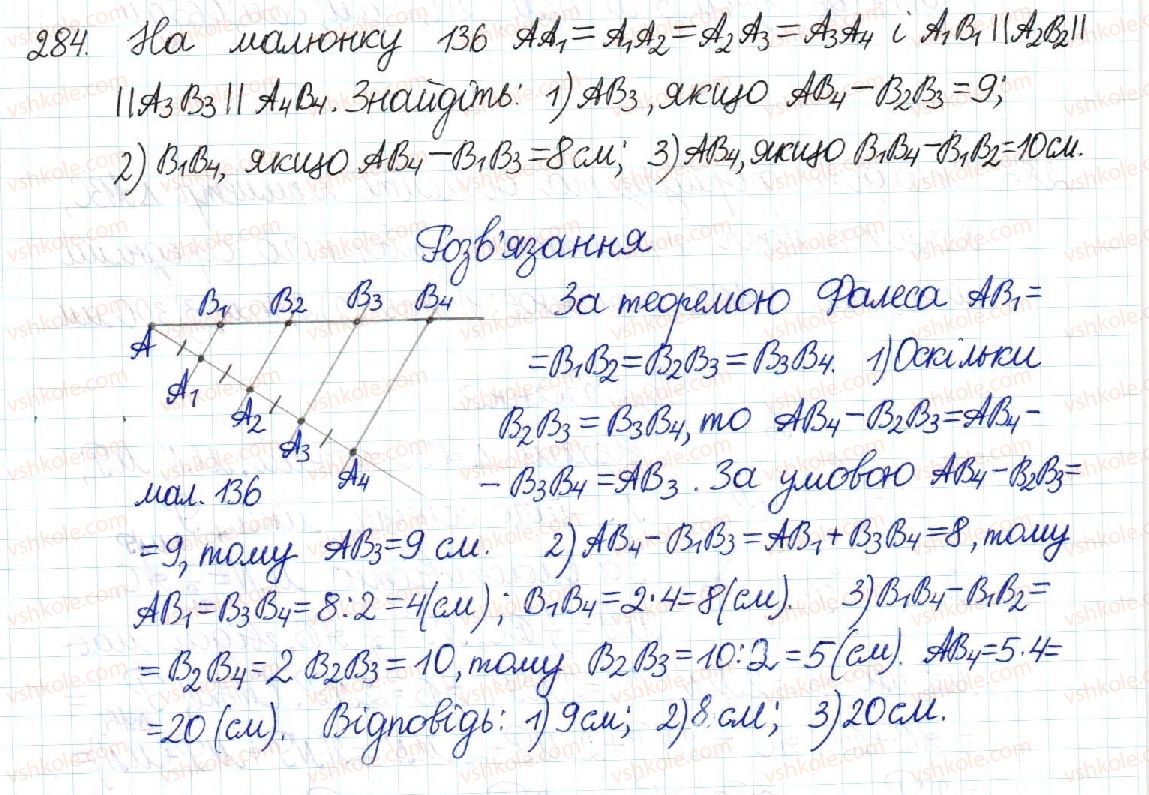 284. На малюнку 136 AA₁ = A₁A₂ = A₂A₃ = A₃A₄ і A₁B₁ || A₂B₂ ||
|| A₃B₃ || A₄B₄. Знайдіть: 1) AB₃, якщо AB₄ – B₂B₃ = 9;
2) B₁B₄, якщо AB₄ – B₁B₃ = 8 см; 3) AB₄, якщо B₁B₄ – B₁B₂ = 10 см.
Розв'язання
B₁ B₂ B₃ B₄
A
A₁
A₂
A₃
A₄
мал. 136
За теоремою Фалеса AB₁ =
= B₁B₂ = B₂B₃ = B₃B₄. 1) Оскільки
B₂B₃ = B₃B₄, то AB₄ – B₂B₃ = AB₄ –
– B₃B₄ = AB₃. За умовою AB₄ – B₂B₃ =
= 9, тому AB₃ = 9 см. 2) AB₄ – B₁B₃ = AB₁ + B₃B₄ = 8, тому
AB₁ = B₃B₄ = 8 : 2 = 4 (см); B₁B₄ = 2·4 = 8 (см). 3) B₁B₄ – B₁B₂ =
= B₂B₄ = 2 B₂B₃ = 10, тому B₂B₃ = 10 : 2 = 5 (см). AB₄ = 5·4 =
= 20 (см). Відповідь: 1) 9 см; 2) 8 см; 3) 20 см.
vshkole.com